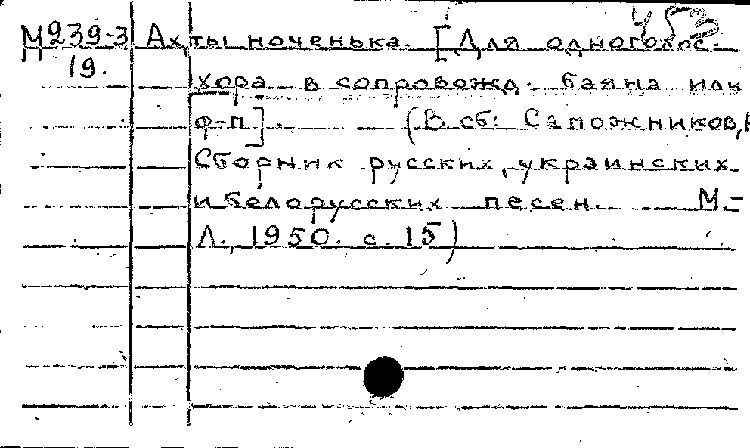 453
М239-3 Ах ты ноченька. [Для одноголос.
19.
хора в сопровожд. баяна или
ф-п]. (В сб: Сапожников,
Сборник русских, украинских
и белорусских песен. М.-
Л., 1950. с. 15)